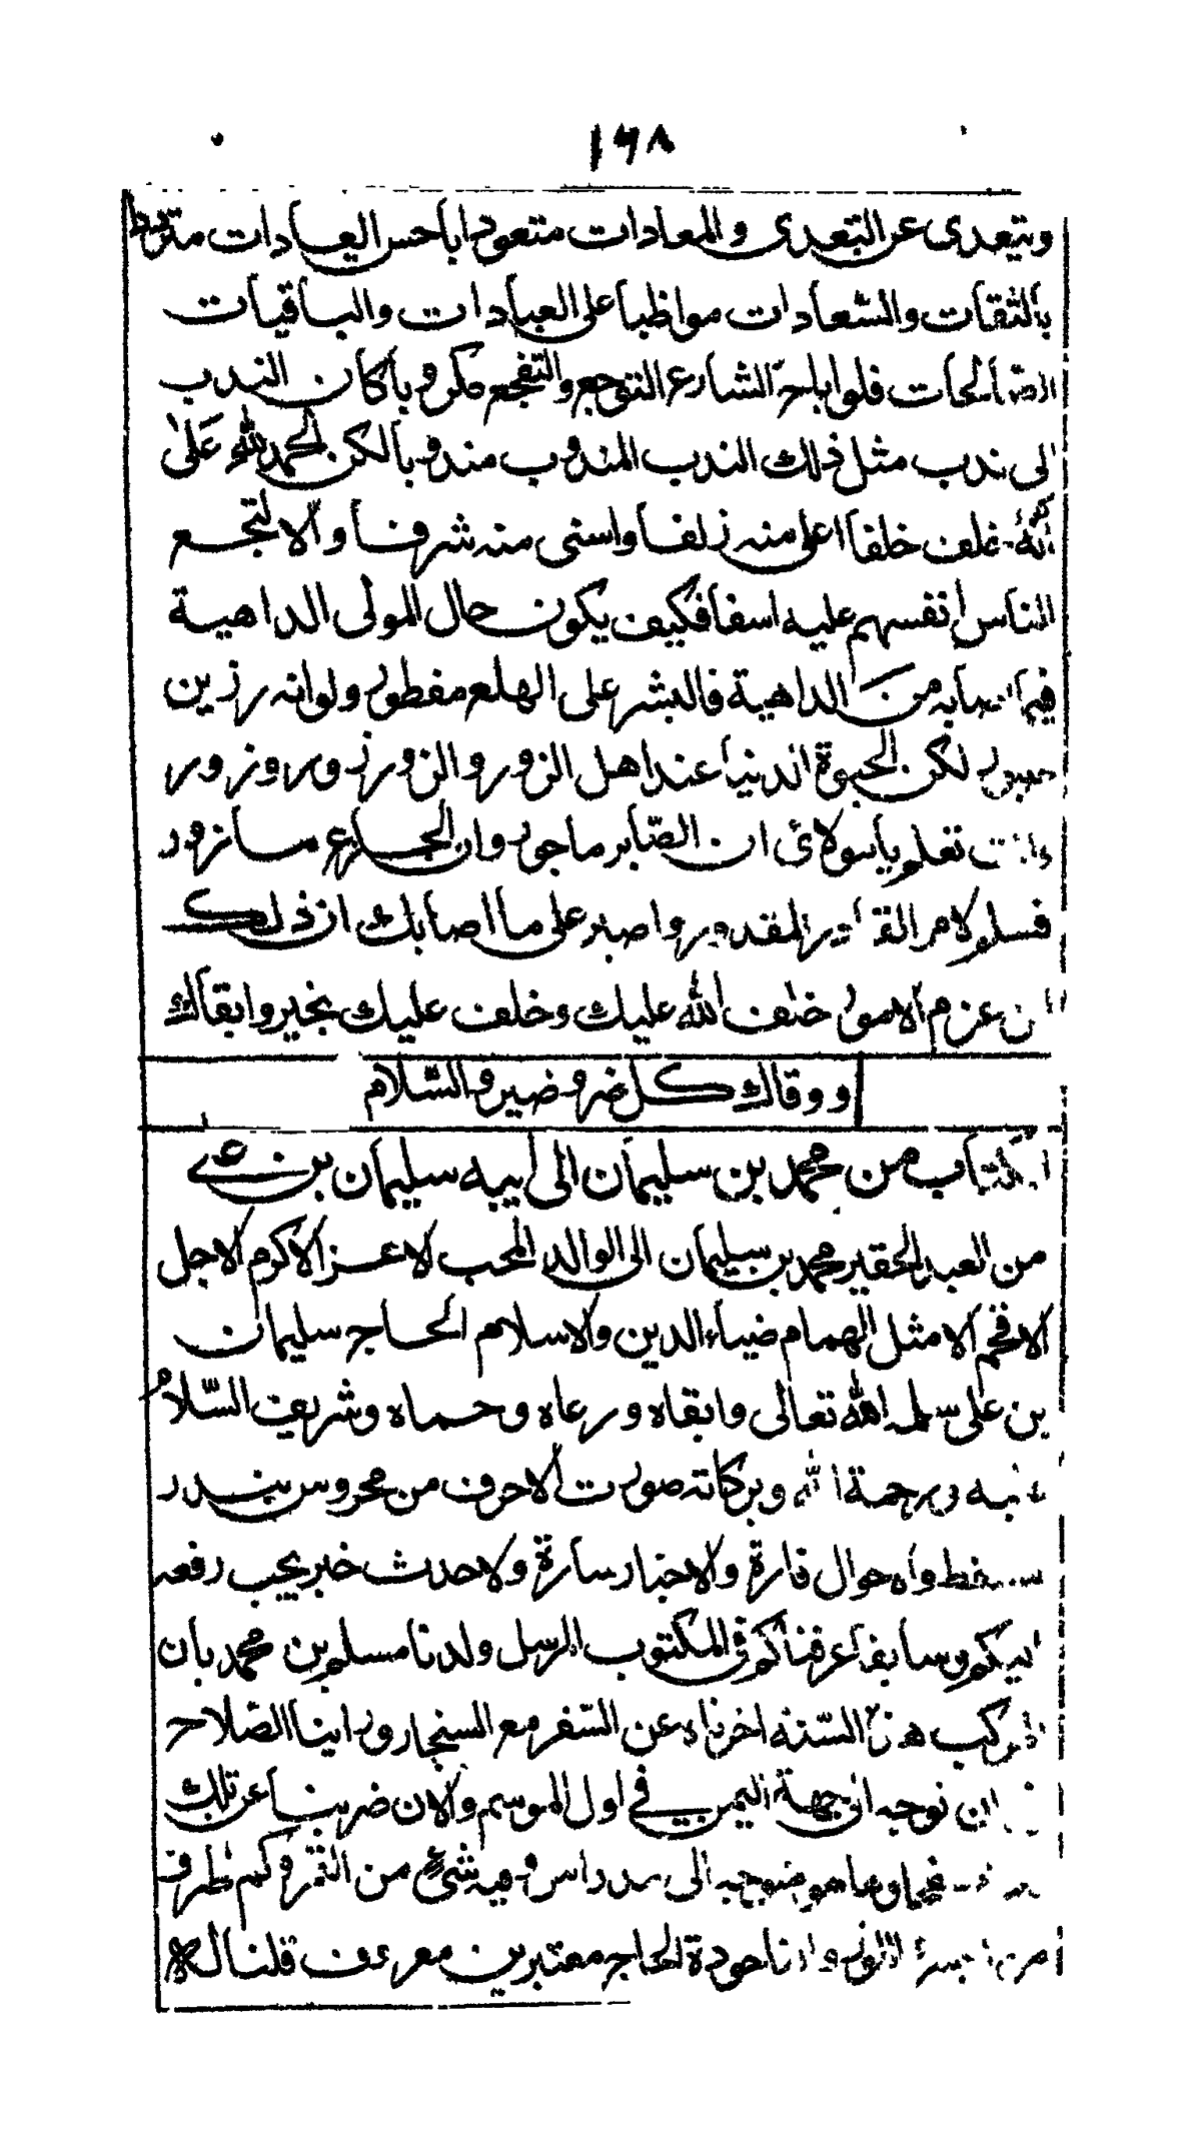 ١٦٨
ويتعدى عن التعدى والمعادات متعودا باحسن العادات متزودا
بالثقات والسعادات مواظبا على العبادات والباقيات
الصالحات فلو اباح الشارع التوجع والتفجع مكروبا كان الندب
الى ندب مثل ذلك الندب المندوب مندوبا لكن الحمد لله على
انه خلف خلفا اعلى منه زلفا واسنى منه شرفا والا لتجع
الناس انفسهم عليه اسفا فكيف يكون حال المولى الداهية
فيما اصابه من الداهية فالبشر على الهلع مفطور ولو انه رزين
صبور لكن الحيوة الدنيا عند اهل الزور والزور زور وزور
وانت تعلم يا مولاى ان الصابر ماجور وان الجازع مازور
فسلم لامر القادر المقدور واصبر على ما اصابك ان ذلك
من عزم الامور خلف الله عليك وخلف عليك بخير وابقاك
ووقاك كل ضر وضير والسلام
الكتاب من محمد بن سليمان الى ابيه سليمان بن على
من العبد الحقير محمد بن سليمان الى الوالد المحب الاعز الاكرم الاجل
الافخم الامثل الهمام ضياء الدين والاسلام الحاج سليمان
بن على سلمه الله تعالى وابقاه ورعاه وحماه وشريف السلام
عليه ورحمة الله وبركاته صدرت الاحرف من محروس بندر
مسقط والاحوال قارة والاخبار سارة ولا حدث خبر يجب رفعه
اليكم وسابقا عرفناكم فى المكتوب المرسل ولدنا مسلم بن محمد بان
المركب هذه السنة اخرناه عن السفر مع السنجار وراينا الصلاح
ان نوجه الى جهة اليمن في اول الموسم والان ضربنا عن تلك
صفحا وها هو متوجه الى مدراس وفيه شئ من الثمر وكم طرف
من والناخودة الحاج معتبرين معروف قلنا له